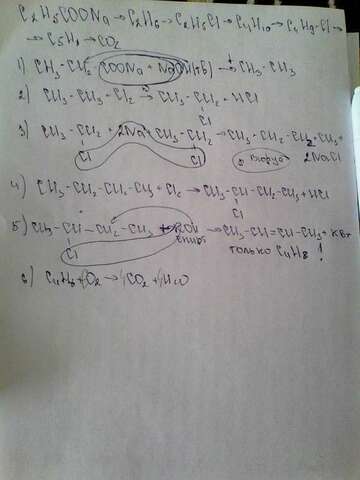 C2H5COONa → C2H6 → C2H5Cl → C4H10 → C4H9Cl →
→ C5H8 → CO2
1) CH3-CH2 COONa + NaOH → CH3-CH3
2) CH3-CH3 + Cl2 → CH3-CH2 + HCl
Cl
3) CH3-CH2 + 2Na + CH3-CH2 → CH3-CH2-CH2-CH3 +
Cl Cl р. Вюрца 2NaCl
4) CH3-CH2-CH2-CH3 + Cl2 → CH3-CH-CH2-CH3 + HCl
Cl
5) CH3-CH-CH2-CH3 + KOH → CH3-CH=CH-CH3 +
Cl только C4H8 !
6) C4H8 + O2 → CO2 + H2O